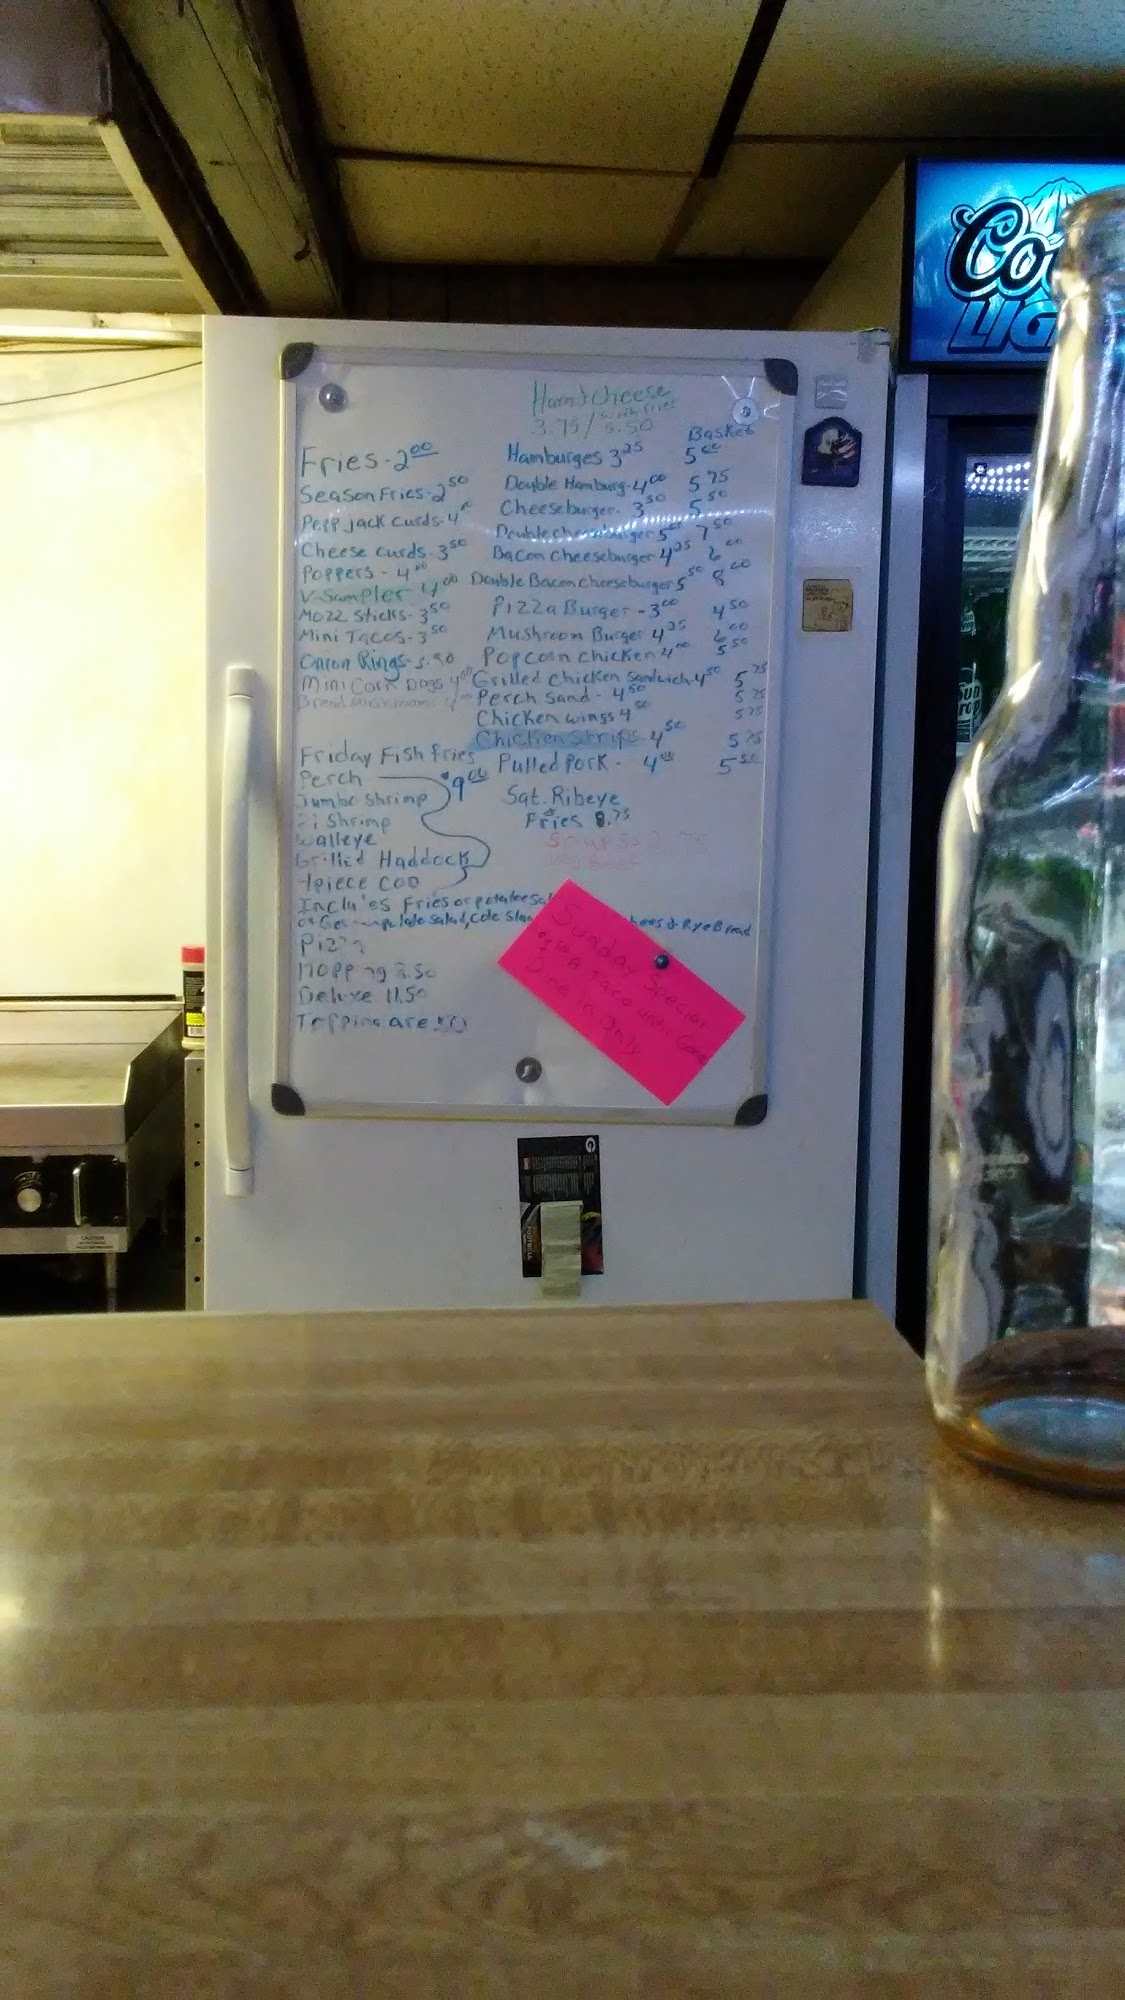 Ham & Cheese
with fries
3.75 / 5.50
Basket
Fries - 2.00
Season Fries - 2.50
Pepp jack curds - 4.00
Cheese curds - 3.50
Poppers - 4.00
V-Sampler 4.00
Mozz Sticks - 3.50
Mini Tacos - 3.50
Onion Rings - 3.50
Mini Corn Dogs 4.00
Bread Mushrooms
Hamburges 3.25 5.00
Double Hamburg - 4.00 5.75
Cheeseburger - 3.50 5.50
Double cheeseburger 7.50
Bacon cheeseburger 4.25 6.00
Double Bacon cheeseburger 5.50
Pizza Burger - 3.00 4.50
Mushroom Burger 4.25 6.00
Popcorn chicken 4.00 5.50
Grilled Chicken Sandwich - 4.50 5.75
Perch Sand - 4.50 5.75
Chicken wings 4.50 5.75
Chicken Strips - 4.50 5.75
Pulled Pork - 4.00 5.50
Sat. Ribeye
& Fries 8.75
Friday Fish fries
Perch $9.00
Jumbo Shrimp
Shrimp
Walleye
Grilled Haddock
piece COD
Fries or potatoe
potato salad, Cole Slaw & Rye Bread
Pizza
Deluxe 11.50
Topping are
Sunday Special
A Taco until Gone
Dine in Only
Coo
LIG
CAUTION